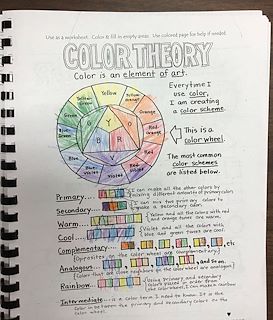 Use as a worksheet. Color & fill in empty areas. Use colored page for help if needed.
COLOR THEORY
Color is an element of art.
Everytime I
use color,
I am creating
a color scheme.
Yellow
Yellow-Green
Yellow-orange
Green
Orange
Blue-Green
Red-Orange
Blue
Red
Blue-violet
Violet
Red-Violet
Y
B
R
This is a
color wheel.
The most common
color schemes
are listed below.
Primary....
I can make all the other colors by
mixing different amounts of primary colors
Secondary
I can mix two primary colors to
make a secondary color.
Warm...
Yellow and all the colors with red
and orange tones are warm.
Cool....
Violet and all the colors with
blue and green tones are cool.
Complementary....
etc
(Opposites on the color wheel are complementary)
Analogous....
and so on.
(Colors that are close neighbors on the color wheel are analogous)
Rainbow....
Using Primary and secondary
colors placed in order from
the color wheel, I can make a rainbow
Intermediate is a color term I need to know. It is the
Color in between the primary and secondary colors on the
color wheel.